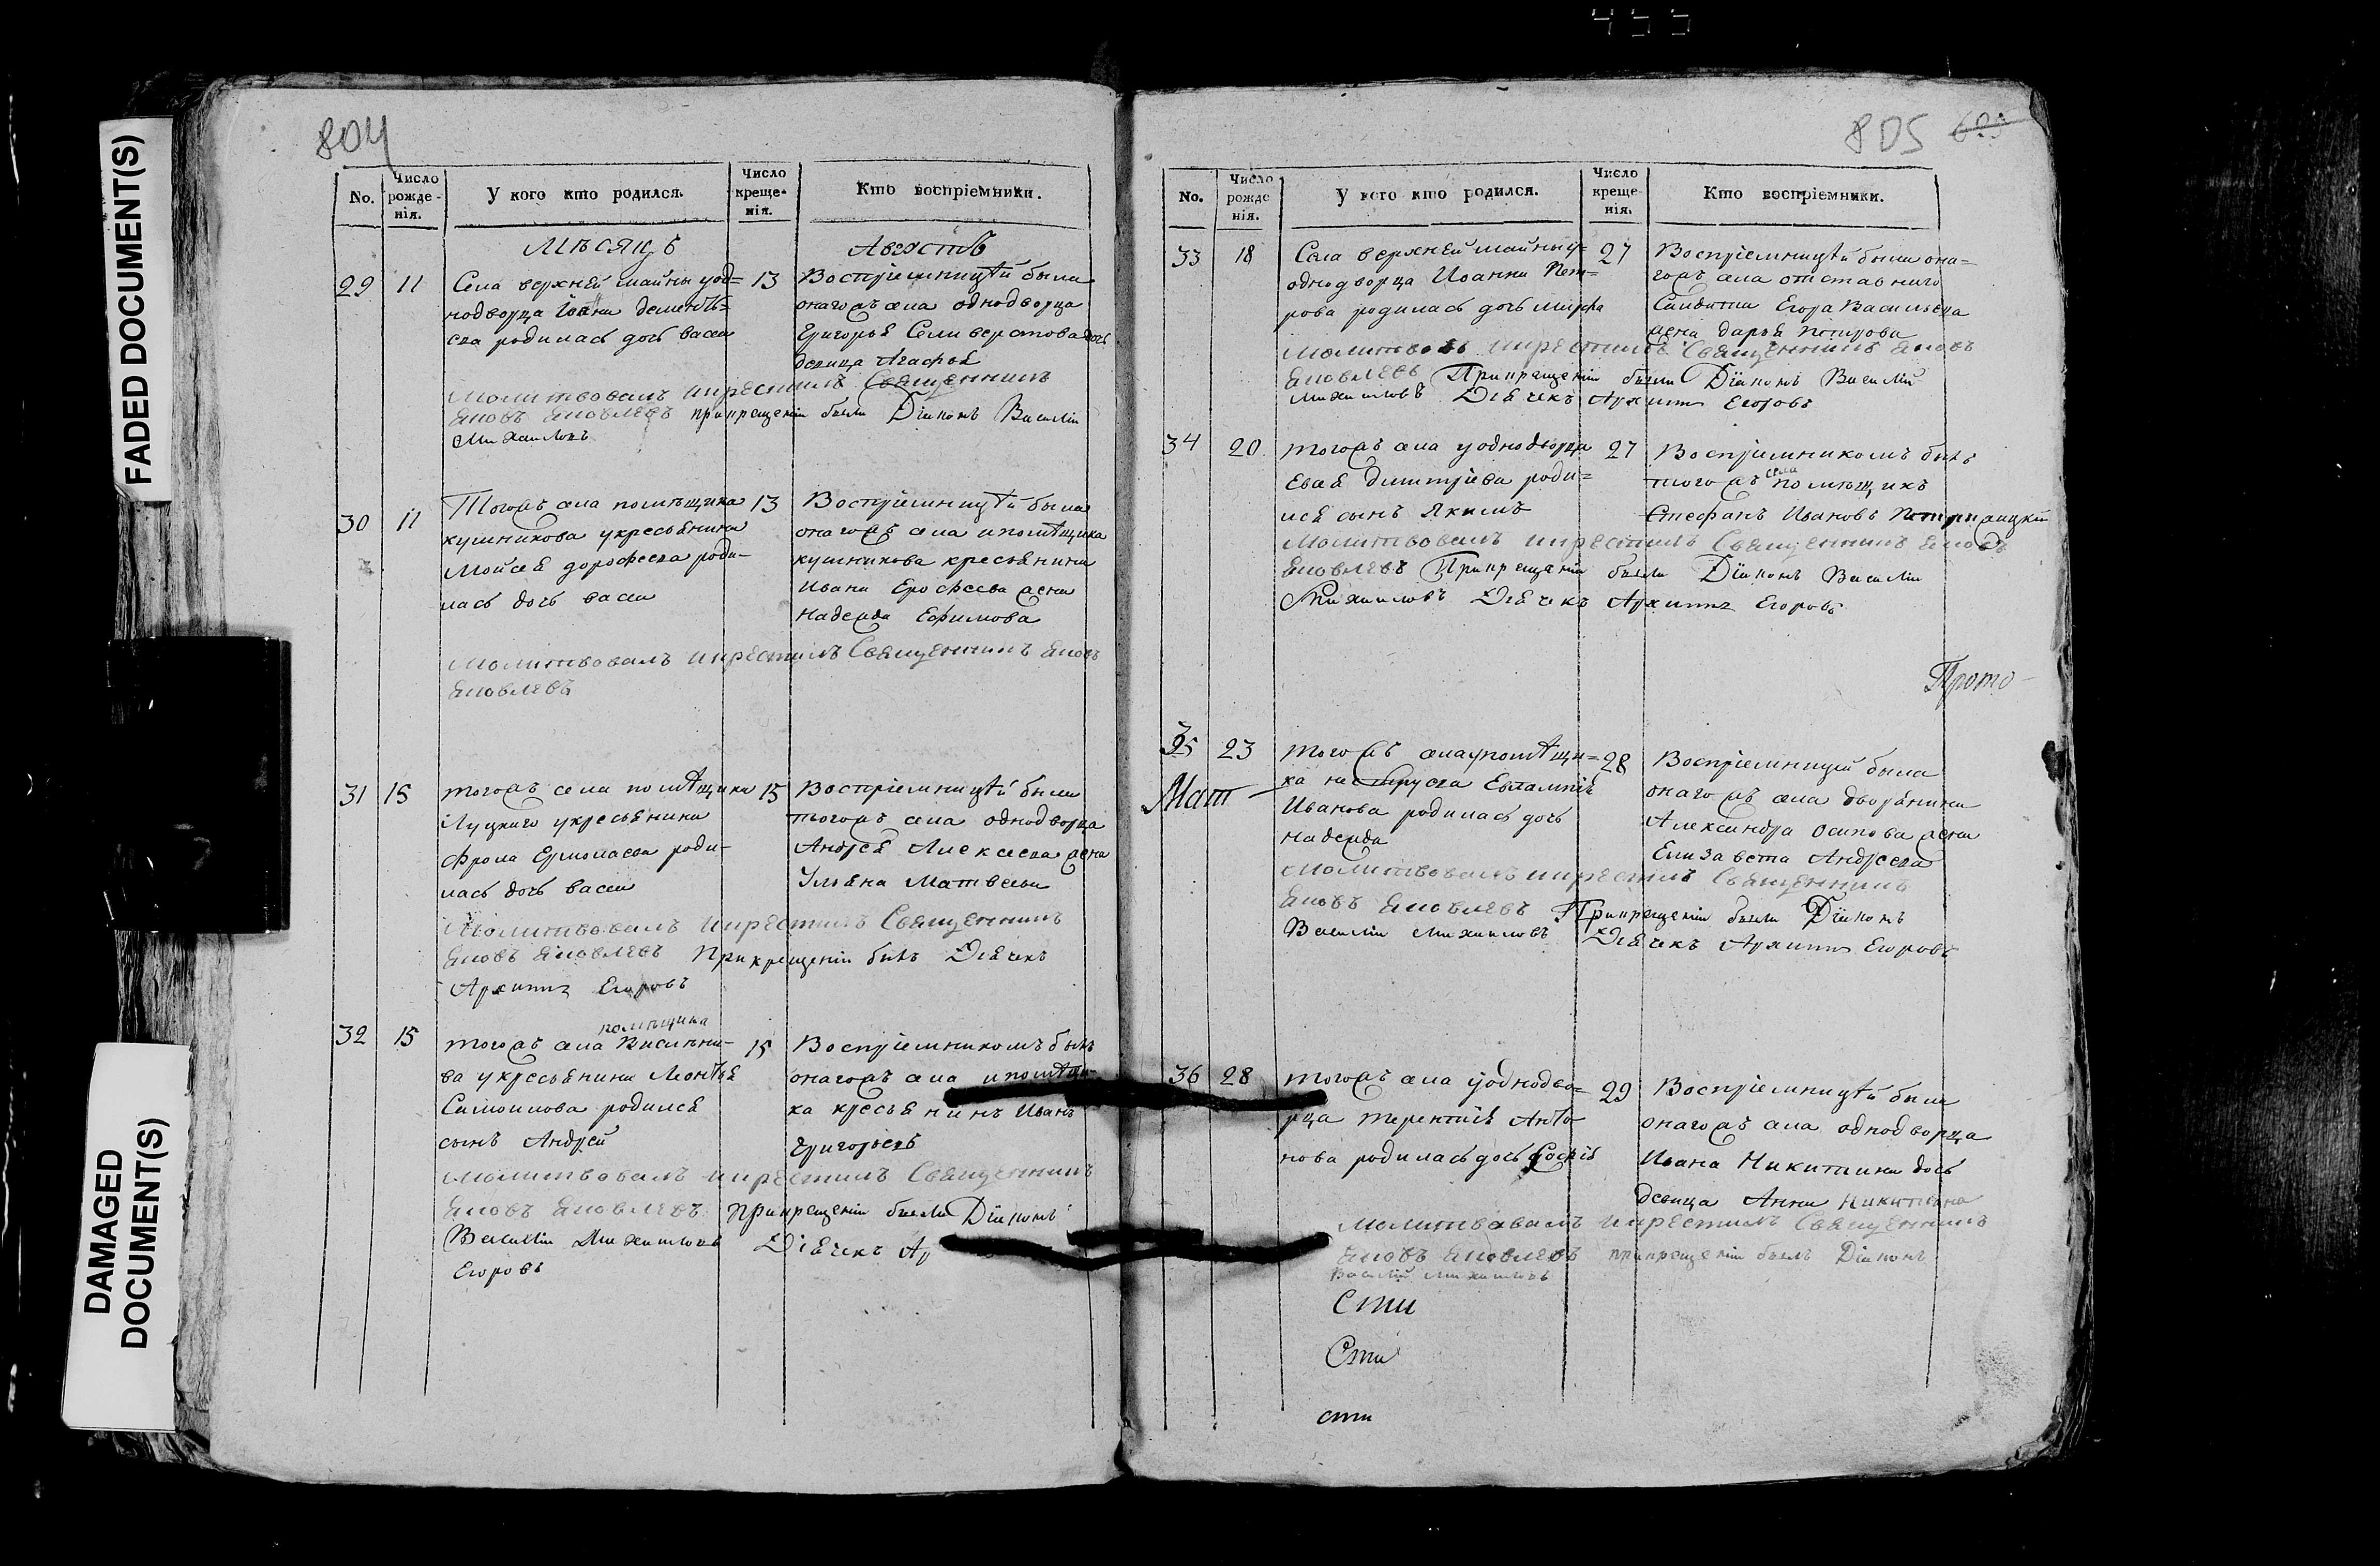 FADED DOCUMENT(S)
DAMAGED
DOCUMENT(S)
804
No.
Число рожде-нія.
У кого кто родился.
Число креще-нія.
Кто воспріемники.
Мѣсяцъ Августъ
29 11
Села верхней майны уод=
нодворца Іоана дементь=
ева родилась дочь васса
13
Воспріемницѣй была
онагожъ села однодворца
Григорья Селиверстова дочь
девица Агафья
Молитвовалъ икрестилъ Священникъ
Яковъ Яковлевъ прикрещеніи были Діаконъ Василіи
Михаиловъ
30 11
Тогожъ села помѣщика
кушникова укресьянина
Мойсея дорофеева роди-
лась дочь васса
13
Воспріемницѣй была
онагожъ села ипомѣщика
кушникова кресьянина
Ивана Ерофеева жена
надежда Ефимова
Молитвовалъ икрестилъ Священникъ Яковъ
Яковлевъ
31 15
тогожъ села помѣщика
Луцкаго укресьянина
Фрола Ермолаева роди-
лась дочь васса
15
Воспріемницѣй была
тогожъ села однодворца
Андрея Алексеева жена
Ульяна Матвеева
Молитвовалъ икрестилъ Священникъ
Яковъ Яковлевъ Прикрещеніи былъ Дьячекъ
Архипъ Егоровъ
32 15
помѣщика
тогожъ села
ва укресьянина Леонтья
Самоилова родился
сынъ Андрей
15
Воспріемникомъ былъ
онагожъ села ипомѣщи-
ка кресьянинъ Иванъ
Григорьевъ
Молитвовалъ икрестилъ Священникъ
Яковъ Яковлевъ прикрещеніи были Діаконъ
Василіи Михаиловъ Дьячекъ Ар
Егоровъ
805
No.
Число рожде нія.
У кого кто родился.
Число креще нія.
Кто воспріемники.
33 18
Села верхней майны у=
однодворца Иоанна Пет=
рова родилась дочь марфа
27
Воспріемницѣй была она=
гожъ села отставнаго
Салдата Егора Васильева
жена дарья петрова
Молитвовалъ икрестилъ Священникъ Яковъ
Яковлевъ Прикрещеніи были Діаконъ Василій
Михаиловъ Дьячекъ Архипъ Егоровъ
34 20
тогожъ села уоднодворца
Евсея дмитріева роди=
лся сынъ Якимъ
27
Воспріемникомъ былъ
тогожъ села помѣщикъ
Стефанъ Ивановъ
Молитвовалъ икрестилъ Священникъ Яковъ
Яковлевъ Прикрещеніи были Діаконъ Василіи
Михаиловъ Дьячекъ Архипъ Егоровъ
Прото-
35 23
тогожъ села упомѣщи=
ка Евлампія
Иванова родилась дочь
надежда
28
Воспріемницей была
онагожъ села дворянина
Александра осипова жена
Елизавета Андреева
Мат
Молитвовалъ икрестилъ Священникъ
Яковъ Яковлевъ Прикрещеніи были Діаконъ
Василіи Михаиловъ Дьячекъ Архипъ Егоровъ
36 28
тогожъ села уоднодво=
рца терентія Анто
нова родилась дочь
29
Воспріемницѣй была
онагожъ села однодворца
Ивана Никитина дочь
девица Анна Никитина
Молитвовалъ икрестилъ Священникъ
Яковъ Яковлевъ прикрещеніи былъ Діаконъ
Василій Михаиловъ
Сти
Сти
сти